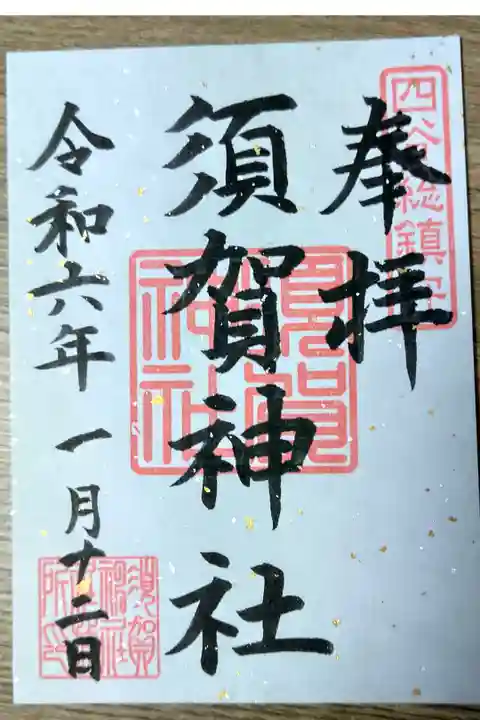 四谷総鎮守
奉拝
須賀神社
須賀神社
令和六年一月十二日
須賀神社社務所之印